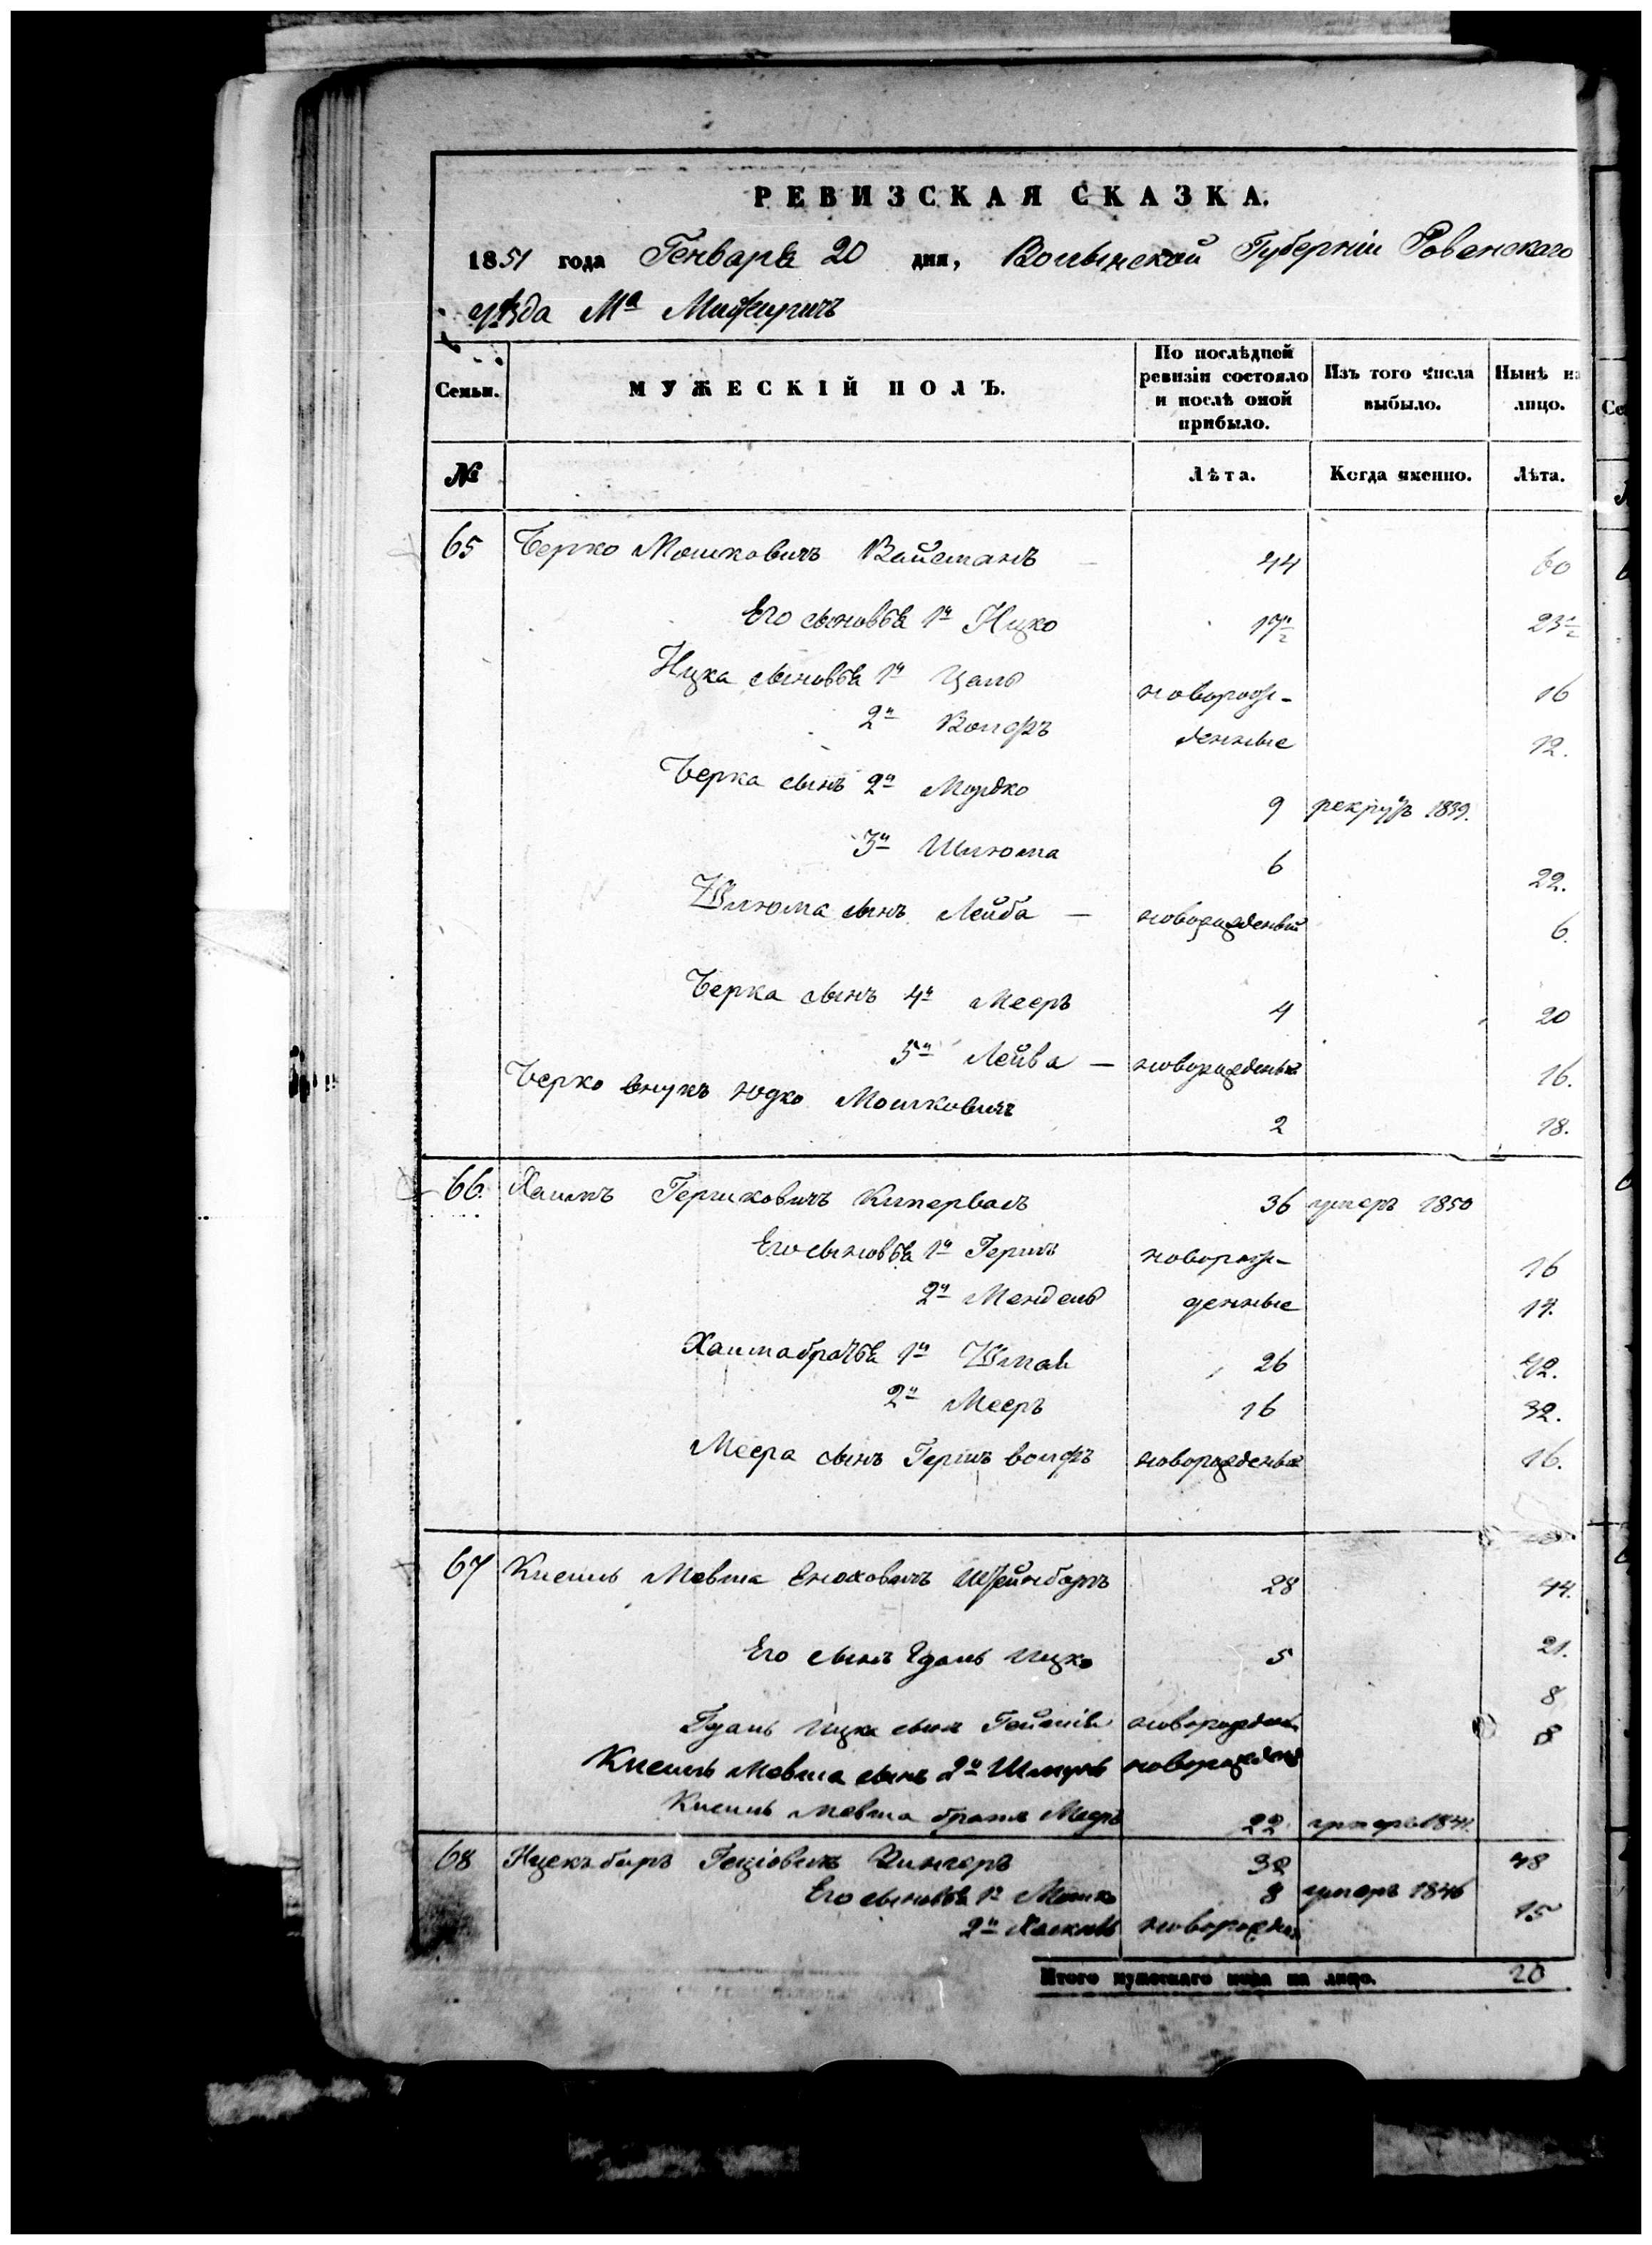 РЕВИЗСКАЯ СКАЗКА.
1851 года Генваря 20 дня, Волынской Губерніи Ровенскаго
уѣзда Мª Межиричъ
Семьи. МУЖЕСКІЙ ПОЛЪ. По послѣдней ревизіи состояло и послѣ оной прибыло. Изъ того числа выбыло. Нынѣ на лицо.
№ Лѣта. Когда именно. Лѣта.
65 Берко Мошковичъ Вайсманъ 44 60
Его сыновья 1й Ицко 17½ 23½
Ицка сыновья 1й Цаль новорож- 16
2й Вольфъ денные 12.
Берка сынъ 2й Мордко 9 рекрутъ 1839.
3й Шлюма 6 22.
Шлюма сынъ Лейба — новорожденый 6.
Берка сынъ 4й Мееръ 4 20
5й Лейва — новорожденый 16.
Берко внукъ Юдко Мошковичъ 2 18.
66. Хаимъ Гершковичъ 36 умеръ 1850
Его сыновья 1й Гершъ новорож- 16
2й Мендель денные 14.
Хаима братья 1й 26 42.
2й Мееръ 16 32.
Меера сынъ Гершъ вольфъ новорожденый 16.
67 Кисиль Мовша Еноховичъ 28 44.
Его сынъ Ицко 5 21.
Ицка сынъ новорожден 8
Кисиль Мовша сынъ 2й Шмуль новорожден 8
Кисиль Мовша братъ Мееръ 22 умеръ 1841.
68 Ицекъ беръ 32 48
Его сыновья 1й Мошко 8 умеръ 1846
2й новорожден 15
Итого мужескаго пола на лицо. 20